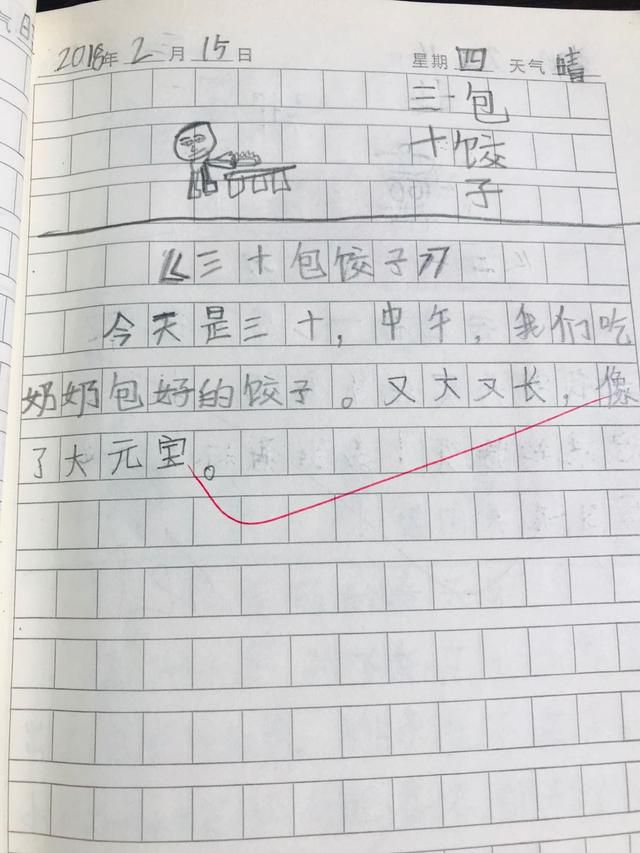 2018年2月15日 星期四 天气晴
三十包饺子
《三十包饺子》
今天是三十，中午，我们吃
奶奶包好的饺子。又大又长，像
了大元宝。